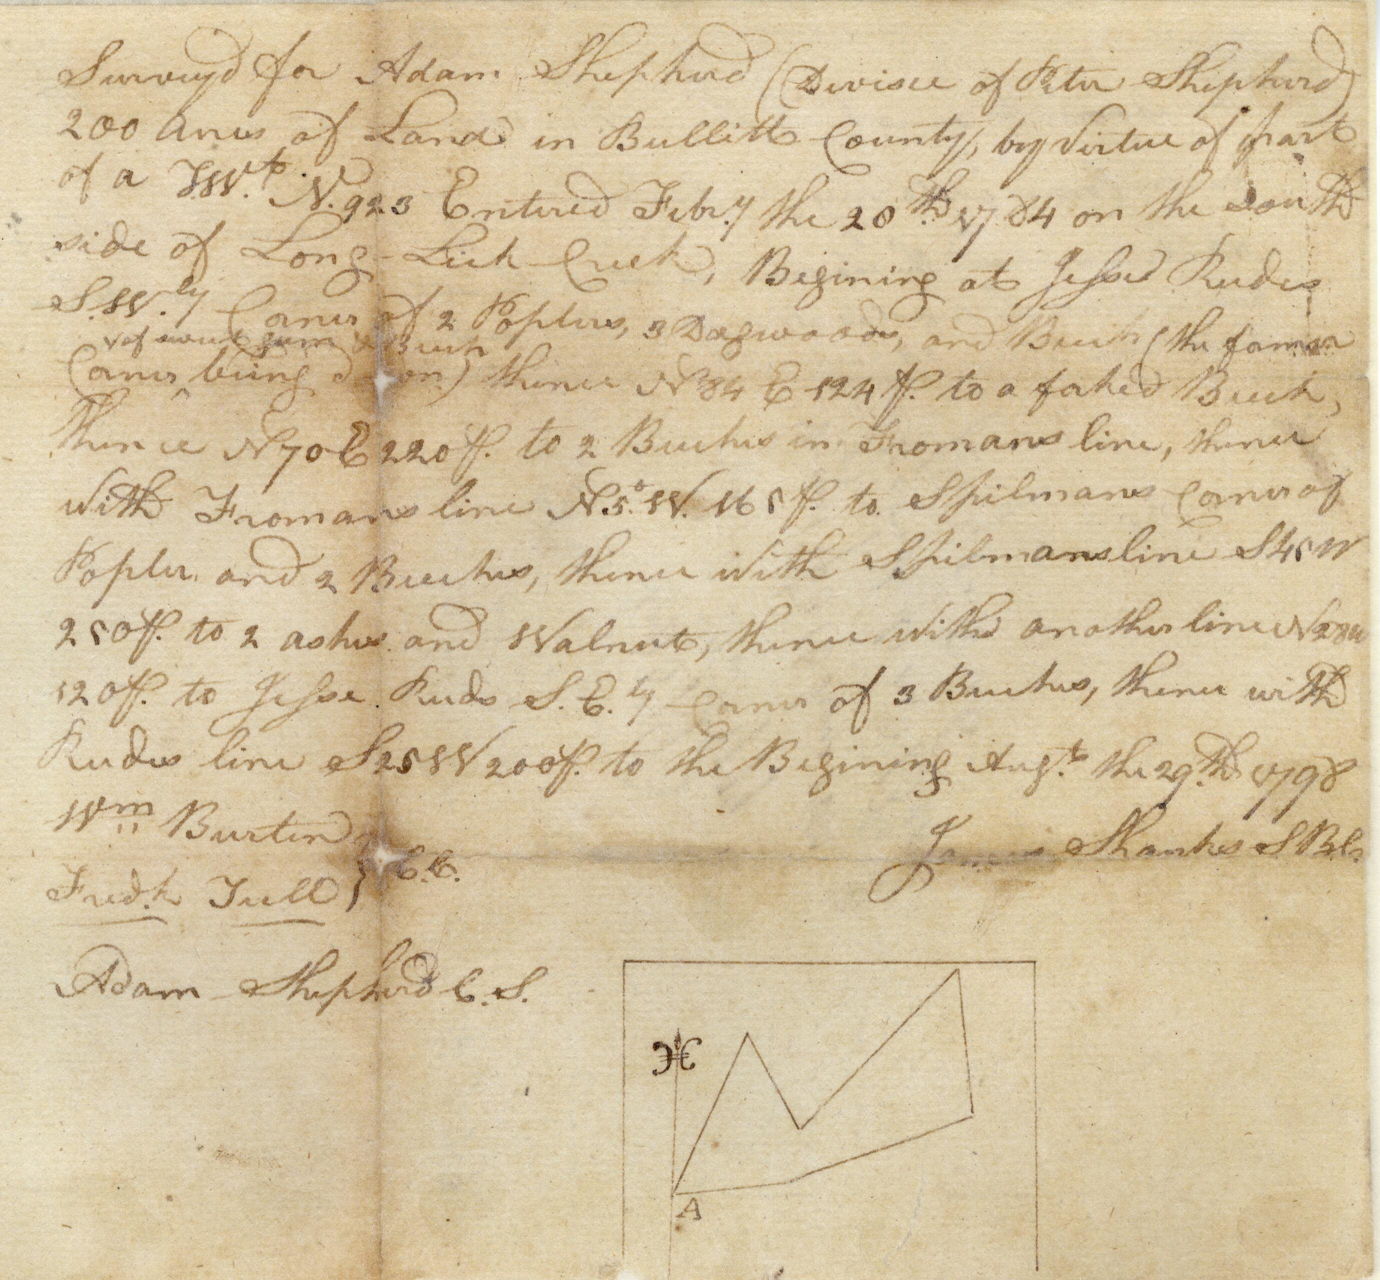 Survey'd for Adam Shepherd (Devisee of Peter Shepherd)
200 Acres of Land in Bullitt County, by Virtue of part
of a T.W.t N. 923 Entered Febr.y the 28th 1784 on the South
side of Long-Lick Creek, Begining at Jesse Rudes
S.W.ly Corner of 2 Poplers, 3 Dogwoods, and Beech (the former
of sweet gum & Beech
Corner being down) thence N 84 E 124 p. to a forked Beech,
thence N 70 E 220 p. to 2 Beeches in Fromans line, thence
with Fromans line N.5° W. 165 p. to Spilmans Corner of
Popler and 2 Beeches, thence with Spilmans line S 45 W
250 p. to 2 ashes and Walnut, thence with another line N 28 W
120 p. to Jesse Ruds S.E.ly Corner of 3 Beeches, thence with
Rudes line S 25 W 200 p. to the Begining Aug.t the 29th 1798
Wm Burten
James Shanks S B C
C.C.
Fred.k Tull
Adam Shepherd C.S.
A